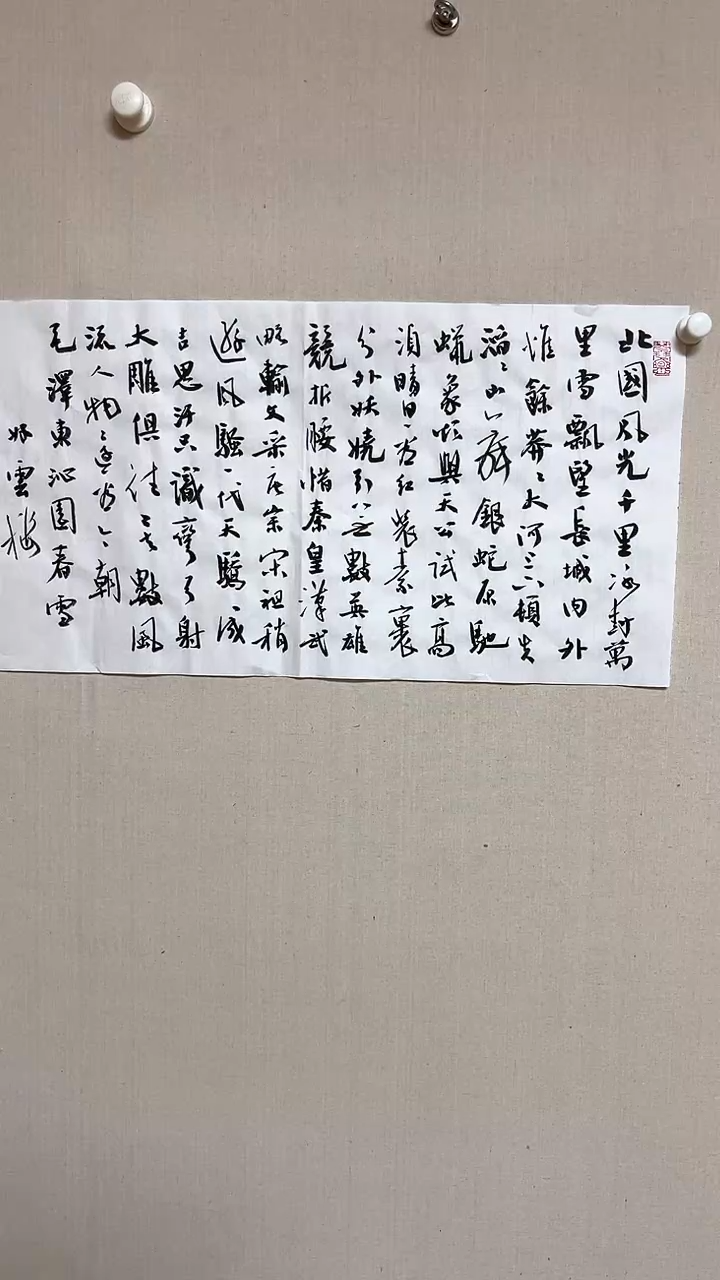 北國風光千里冰封萬
里雪飄望長城內外
惟餘莽〻大河上下頓失
滔〻山舞銀蛇原馳
蠟象欲與天公試比高
須晴日看紅裝素裹
分外妖嬈引無數英雄
競折腰惜秦皇漢武
略輸文采唐宗宋祖稍
遜風騷一代天驕成
吉思汗只識彎弓射
大雕俱往矣數風
流人物還看今朝
毛澤東沁園春雪
雲樓